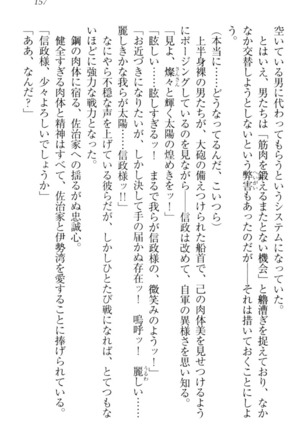 157
空いている男に代わってもらうというシステムになっている。
とはいえ、男たちは「筋肉を鍛えるまたとない機会」と艪漕ぎを捉えており、なか
なか交替しようとしないという弊害もあったのだが――それは措いておくことにしよ
う。
（本当に……どうなってるんだ、こいつら）
上半身裸の男たちが、大砲の備えつけられた船首で、己の肉体美を見せつけるよう
にポージングしているのを見ながら――信政は改めて、自軍の異様さを思い知る。
「見よ、燦々と輝く太陽の煌めきをッ！」
「眩しい……眩しすぎるッ！　まるで我らが信政様の、微笑みのようッ！」
「お近づきになりたいが、しかし決して手の届かぬ存在ッ！　嗚呼ッ！　麗しい……
麗しきかな我らが太陽……信政様ッ!!」
なにやら不穏な声を上げている彼らだが、しかしひとたび戦になれば、とてつもな
いほどに強力な戦力となった。
鋼の肉体に宿る、佐治家への揺るがぬ忠誠心。
健全すぎる肉体と精神はすべて、佐治家と伊勢湾を愛することに捧げられている。
「信政様、少々よろしいでしょうか」
「ああ、なんだ？」